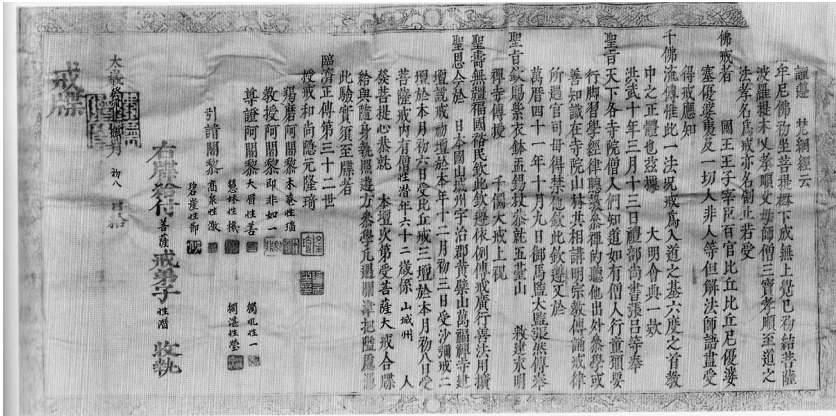 謹遵 梵網經云
牟尼佛初坐菩提樹下成無上覺已初結菩薩
波羅提木叉孝順父母師僧三寶孝順至道之
法孝名爲戒亦名制止若受
佛戒者 國王王子宰臣百官比丘比丘尼優婆
塞優婆夷及一切人非人等但解法師語盡受
得戒應知
千佛流傳惟此一法況戒爲人道之基六度之首教
中之正體也茲據 大明會典一欵
洪武十年三月十三日禮部尚書張呂等奉
聖旨天下各寺院僧人們知道如有僧人行童頭要
行脚習學經律聽講叅禪的聽他出外叅學或
善知識在寺院山林共相講明宗教傳誦戒律
所過官司毋得禁他欽此欽遵又於
萬曆四十一年十月九日御馬監大監張然傳奉
聖旨欽賜紫衣鉢盂錫杖叅就五臺山 敕建永明
禪寺傳授 千佛大戒上祝
聖壽無疆福國裕民欽此欽遵依例傳戒廣行善法用擴
聖恩今於 日本國山城州宇治郡黃檗山萬福禪寺建
壇說戒初壇於本年十二月初三日受沙彌戒二
壇於本月初六日受比丘戒三壇於本月初八日受
菩薩戒內有僧性潛年六十二歲係山城州 人
發菩提心恭就 本壇次第受菩薩大戒合牒
給與隨身執照遊方叅學凡遇關津把隘處憑
此驗實須至牒者
臨濟正傳第三十二世
授戒和尚隱元隆琦
羯磨阿闍黎木菴性瑫
教授阿闍黎即非如一
尊證阿闍黎 大眉性善 獨吼性一
慧林性機 獨湛性瑩
引請闍黎
碧崖性節
右牒給付菩薩戒弟子性潛 收執
大歲癸卯 月初八日給
戒牒